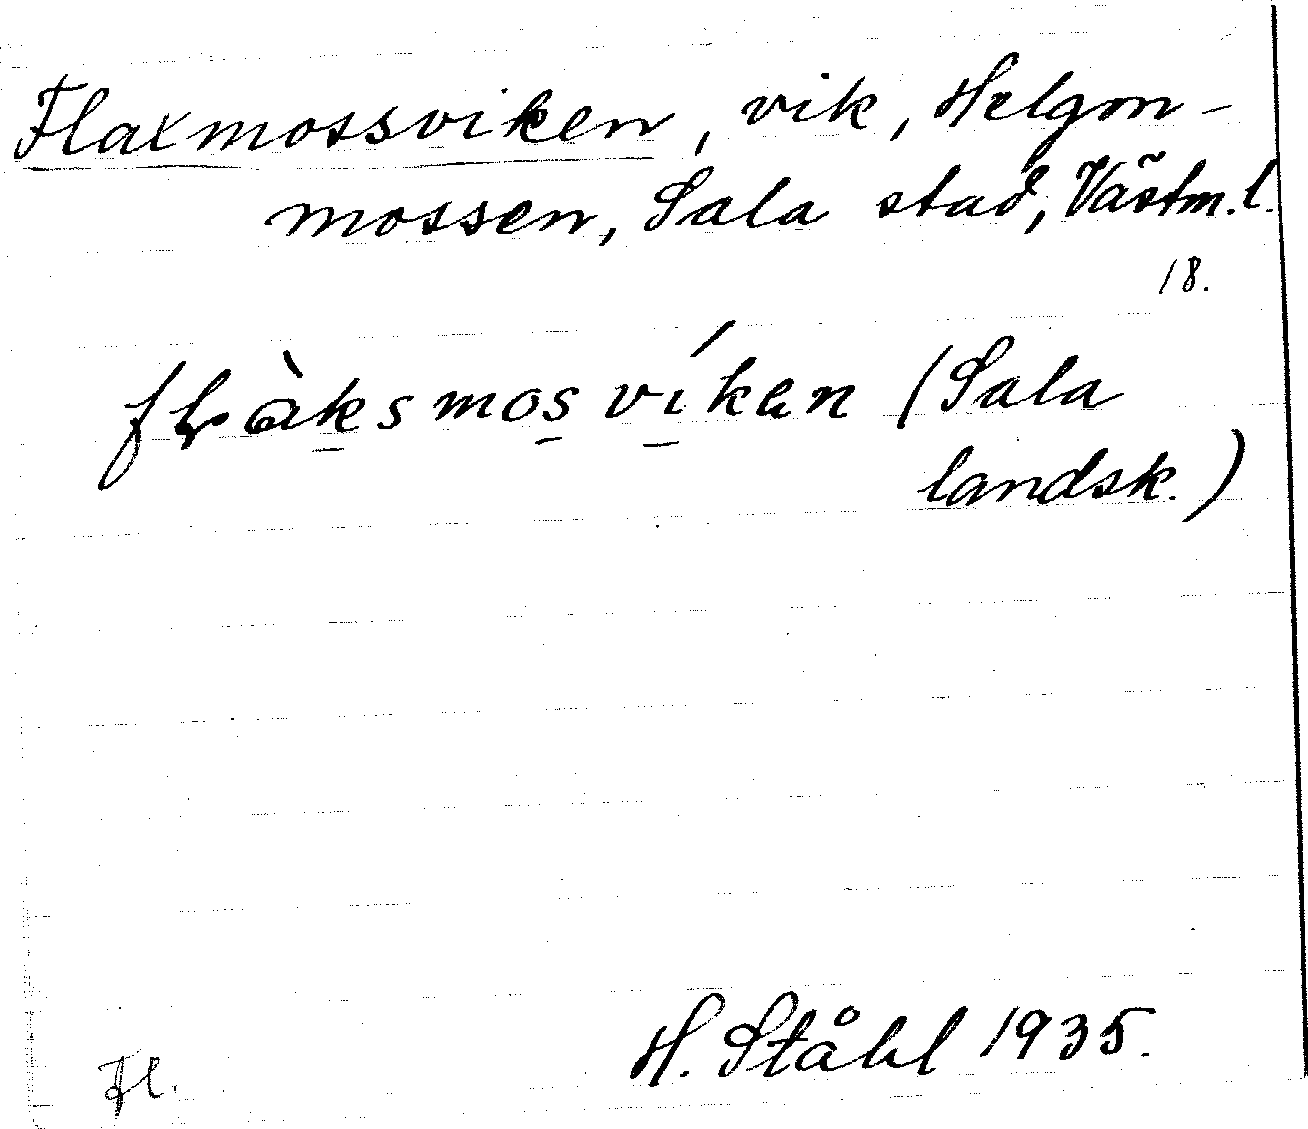 Flaxmossviken, vik, Helgon-
mossen, Sala stad, Västm. l.
18.
flàksmosvíkan (Sala
landsk.)
H. Ståhl 1935.
Fl.